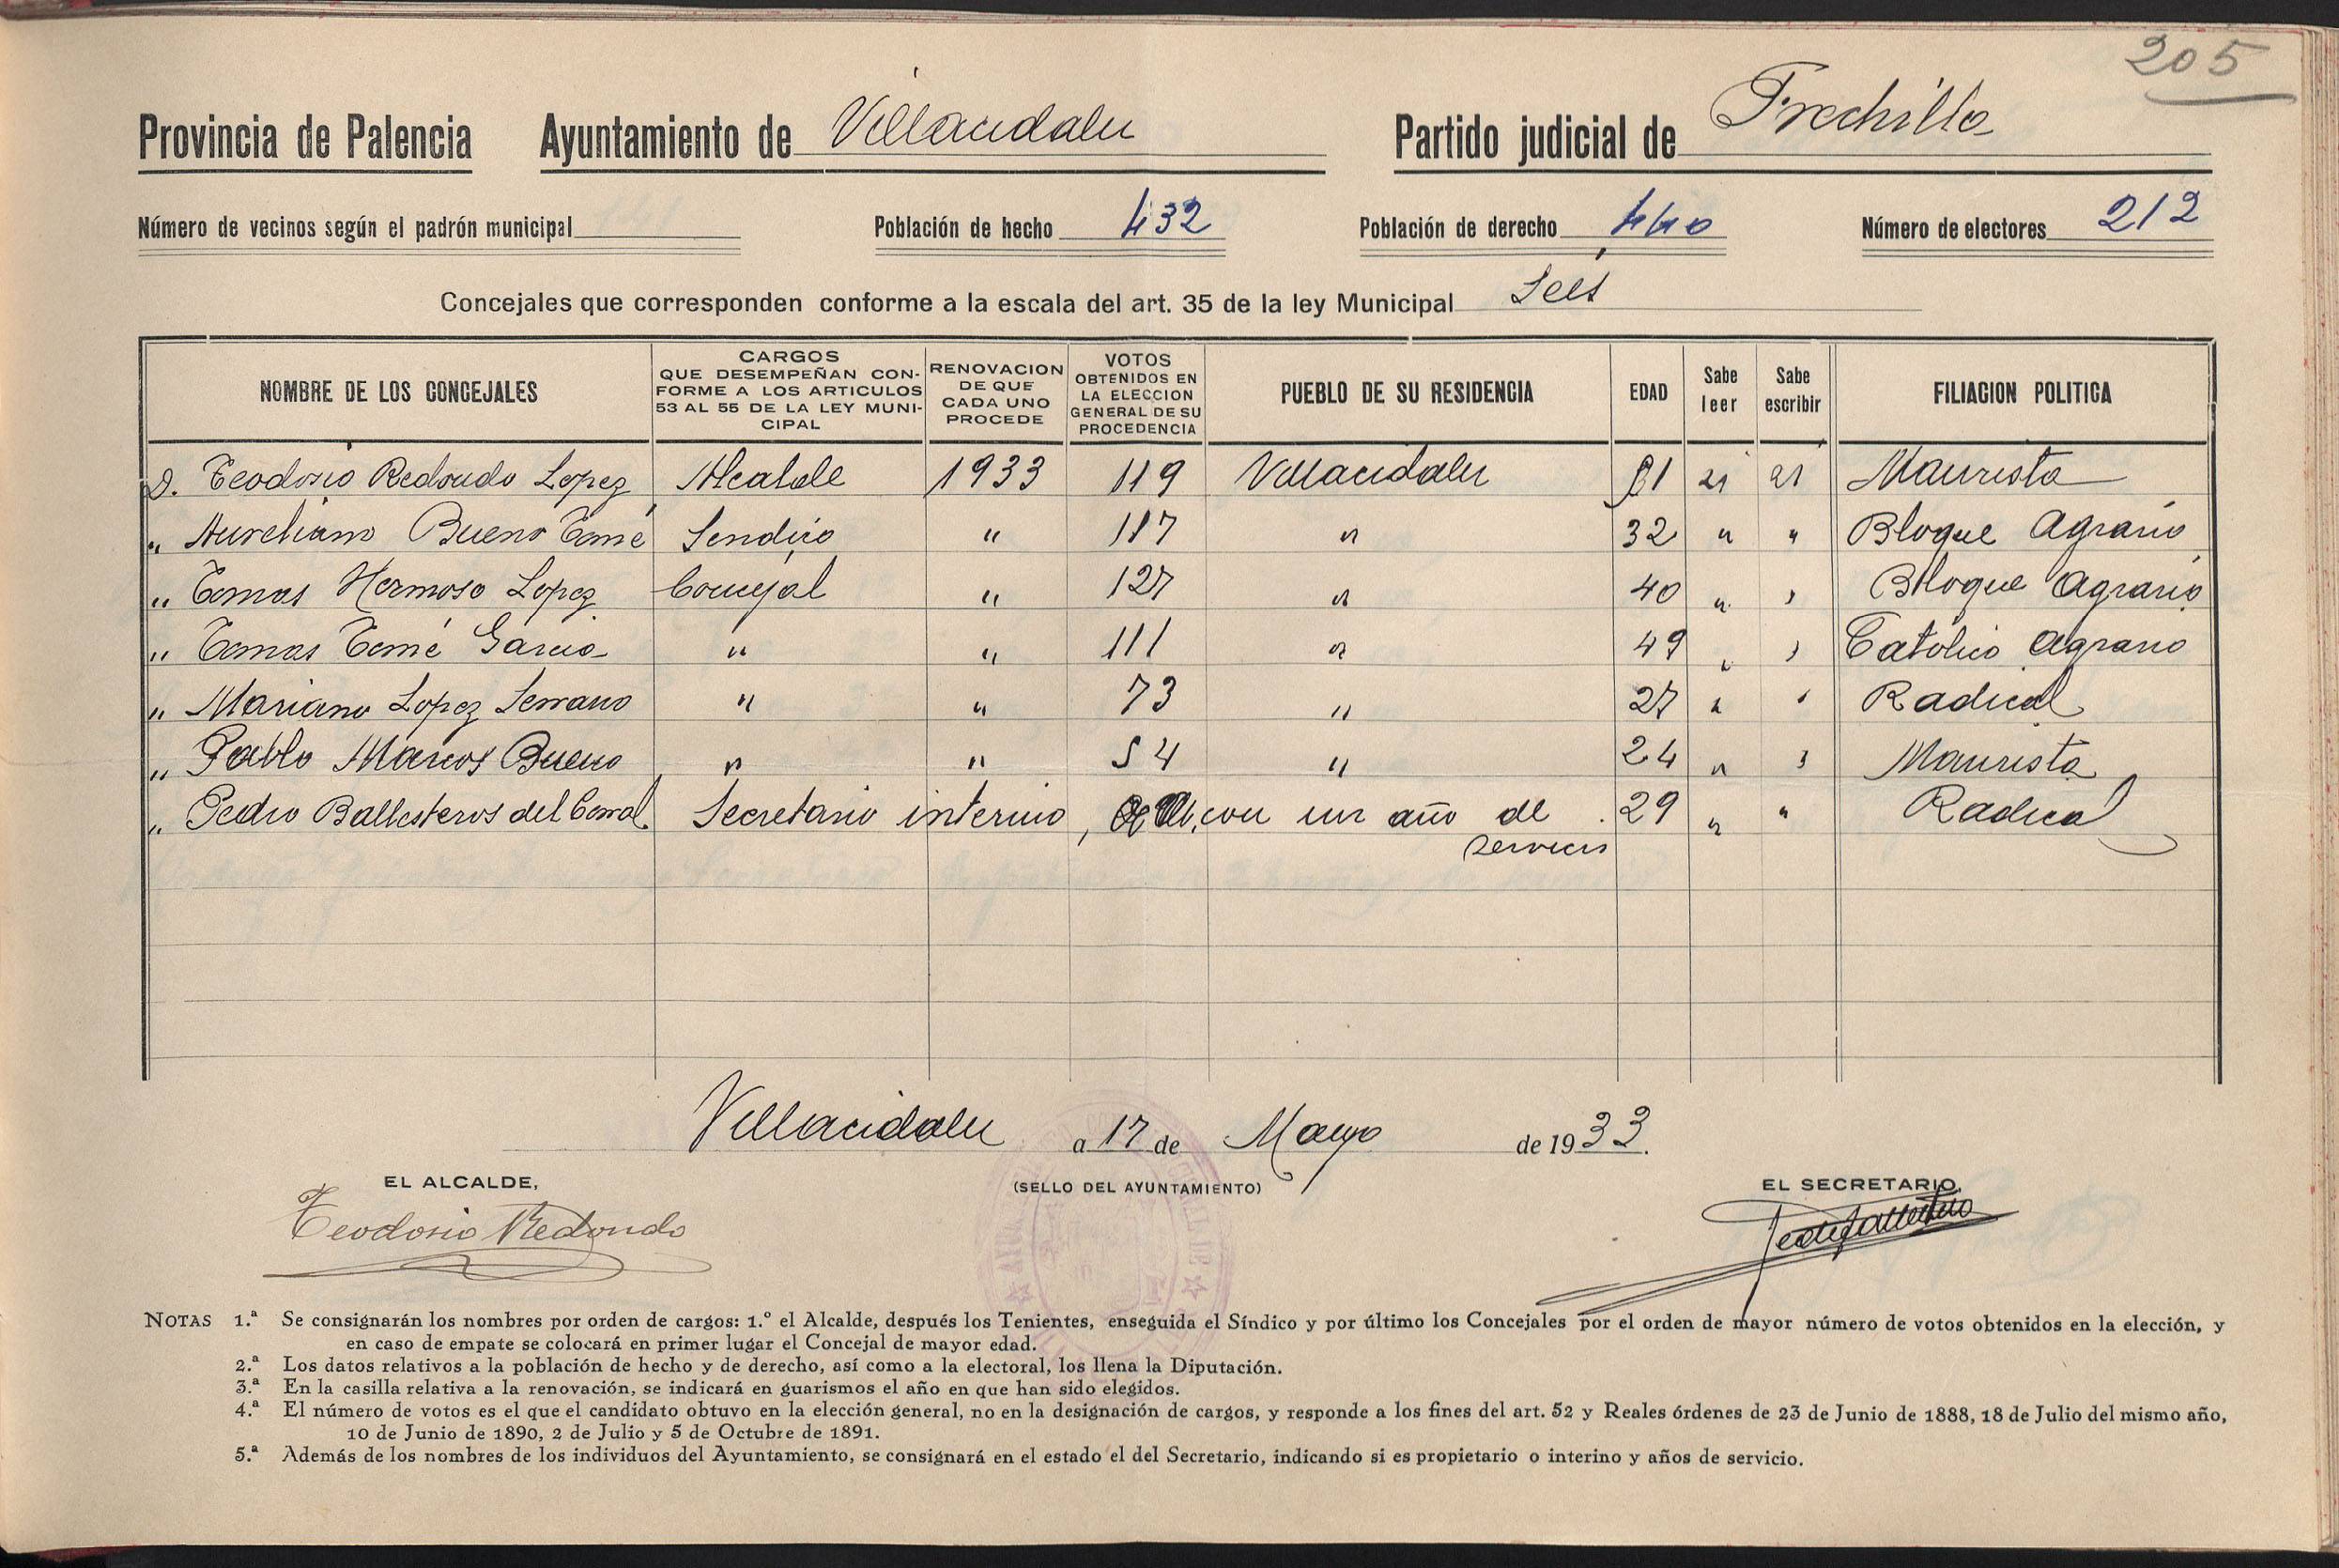 205
Provincia de Palencia Ayuntamiento de Villacidaler Partido judicial de Frechilla
Número de vecinos según el padrón municipal Población de hecho 432 Población de derecho 440 Número de electores 212
Concejales que corresponden conforme a la escala del art. 35 de la ley Municipal Seis
NOMBRE DE LOS CONCEJALES CARGOS QUE DESEMPEÑAN CONFORME A LOS ARTICULOS 53 AL 55 DE LA LEY MUNICIPAL RENOVACION DE QUE CADA UNO PROCEDE VOTOS OBTENIDOS EN LA ELECCION GENERAL DE SU PROCEDENCIA PUEBLO DE SU RESIDENCIA EDAD Sabe leer Sabe escribir FILIACION POLITICA
D. Teodosio Redondo Lopez Alcalde 1933 119 Villacidaler 31 si si Maurista
" Aureliano Bueno Tomé Sindico " 117 " 32 " " Bloque Agrario
" Tomas Hermoso Lopez Concejal " 127 " 40 " " Bloque Agrario
" Tomas Tomé Garcia " " 111 " 49 " " Católico Agrario
" Mariano Lopez Serrano " " 73 " 27 " " Radical
" Pablo Marcos Bueno " " 54 " 24 " " Maurista
" Pedro Ballesteros del Corral Secretario interino, con un año de servicio 29 " " Radical
Villacidaler a 17 de Mayo de 1933.
EL ALCALDE, (SELLO DEL AYUNTAMIENTO) EL SECRETARIO,
Teodosio Redondo Pedro Ballesteros
NOTAS 1.ª Se consignarán los nombres por orden de cargos: 1.º el Alcalde, después los Tenientes, enseguida el Síndico y por último los Concejales por el orden de mayor número de votos obtenidos en la elección, y
en caso de empate se colocará en primer lugar el Concejal de mayor edad.
2.ª Los datos relativos a la población de hecho y de derecho, así como a la electoral, los llena la Diputación.
3.ª En la casilla relativa a la renovación, se indicará en guarismos el año en que han sido elegidos.
4.ª El número de votos es el que el candidato obtuvo en la elección general, no en la designación de cargos, y responde a los fines del art. 52 y Reales órdenes de 23 de Junio de 1888, 18 de Julio del mismo año,
10 de Junio de 1890, 2 de Julio y 5 de Octubre de 1891.
5.ª Además de los nombres de los individuos del Ayuntamiento, se consignará en el estado el del Secretario, indicando si es propietario o interino y años de servicio.